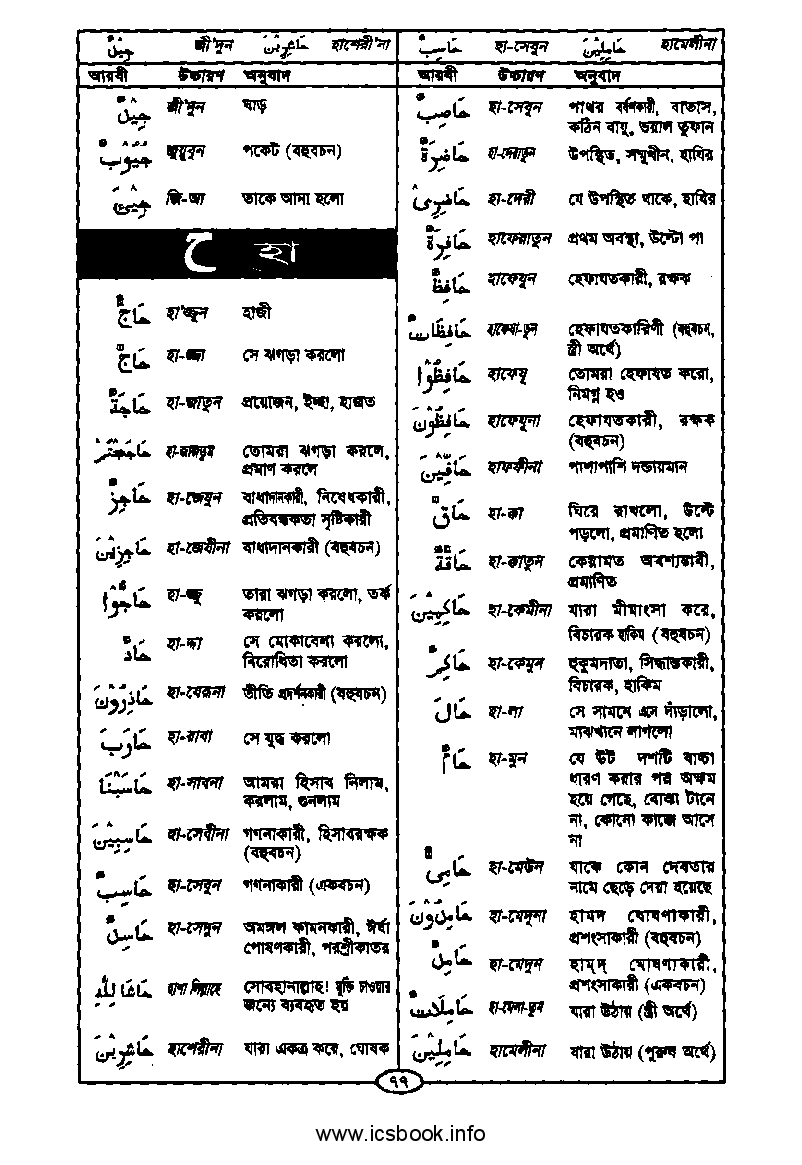 جِيْدٌ জী'দুন حَاشِرِيْنَ হাশেরী'না
আরবী উচ্চারণ অনুবাদ
جِيْدٌ জী'দুন ঘাড়
جُيُوْبٌ জুয়ুবুন পকেট (বহুবচন)
جِيْئَ জি-আ তাকে আনা হলো
ح হা
حَاجٌّ হা'জ্জুন হাজী
حَاجَّ হা-জ্জা সে ঝগড়া করলো
حَاجَةٌ হা-জাতুন প্রয়োজন, ইচ্ছা, হাজত
حَاجَجْتُمْ হা-জাজতুম তোমরা ঝগড়া করলে,
প্রমাণ করলে
حَاجِزٌ হা-জেযুন বাধাদানকারী, নিষেধকারী,
প্রতিবন্ধকতা সৃষ্টিকারী
حَاجِزِيْنَ হা-জেযীনা বাধাদানকারী (বহুবচন)
حَاجُّوْا হা-জ্জু তারা ঝগড়া করলো, তর্ক
করলো
حَادَّ হা-দ্দা সে মোকাবেলা করলো,
বিরোধিতা করলো
حَاذِرُوْنَ হা-যেরুনা ভীতি প্রদর্শনকারী (বহুবচন)
حَارَبَ হা-রাবা সে যুদ্ধ করলো
حَاسَبْنَا হা-সাবনা আমরা হিসাব নিলাম,
করলাম, গুনলাম
حَاسِبِيْنَ হা-সেবীনা গণনাকারী, হিসাবরক্ষক
(বহুবচন)
حَاسِبٌ হা-সেবুন গণনাকারী (একবচন)
حَاسِدٌ হা-সেদুন অমঙ্গল কামনকারী, ঈর্ষা
পোষণকারী, পরশ্রীকাতর
حَاشَا لِلّٰهِ হাশা লিল্লাহে সোবহানাল্লাহ! মুক্তি চাওয়ার
জন্যে ব্যবহৃত হয়
حَاشِرِيْنَ হাশেরীনা যারা একত্র করে, ঘোষক
حَاسِبٌ হা-সেবুন حَامِلِيْنَ হামেলীনা
আরবী উচ্চারণ অনুবাদ
حَاصِبٌ হা-সেবুন পাথর বর্ষণকারী, বাতাস,
কঠিন বায়ু, ভয়াল তুফান
حَاضِرَةٌ হা-দেরাতুন উপস্থিত, সম্মুখীন, হাযির
حَاضِرِىْ হা-দেরী যে উপস্থিত থাকে, হাযির
حَافِرَةٌ হাফেরাতুন প্রথম অবস্থা, উল্টো পা
حَافِظٌ হাফেযুন হেফাযতকারী, রক্ষক
حَافِظَاتٌ হাফেযা-তুন হেফাযতকারিণী (বহুবচন,
স্ত্রী অর্থে)
حَافِظُوْا হাফেযু তোমরা হেফাযত করো,
নিমগ্ন হও
حَافِظُوْنَ হাফেযুনা হেফাযতকারী, রক্ষক
(বহুবচন)
حَافِّيْنَ হাফফীনা পাশাপাশি দন্ডায়মান
حَاقَ হা-কা ঘিরে রাখলো, উল্টে
পড়লো, প্রমাণিত হলো
حَاقَّةٌ হা-ক্কাতুন কেয়ামত অবশ্যম্ভাবী,
প্রমাণিত
حَاكِمِيْنَ হা-কেমীনা যারা মীমাংসা করে,
বিচারক হাকিম (বহুবচন)
حَاكِمٌ হা-কেমুন হুকুমদাতা, সিদ্ধান্তকারী,
বিচারক, হাকিম
حَالَ হা-লা সে সামনে এসে দাঁড়ালো,
মাঝখানে লাগলো
حَامٌ হা-মুন যে উট দশটি বাচ্চা
ধারণ করার পর অক্ষম
হয়ে গেছে, বোঝা টানে
না, কোনো কাজে আসে
না
حَامِىٌ হা-মেউন যাকে কোন দেবতার
নামে ছেড়ে দেয়া হয়েছে
حَامِدُوْنَ হা-মেদুনা হামদ ঘোষণাকারী,
প্রশংসাকারী (বহুবচন)
حَامِدٌ হা-মেদুন হাম্‌দ ঘোষণাকারী,
প্রশংসাকারী (একবচন)
حَامِلَاتٌ হা-মেলা-তুন যারা উঠায় (স্ত্রী অর্থে)
حَامِلِيْنَ হামেলীনা যারা উঠায় (পুরুষ অর্থে)
৭৭
www.icsbook.info